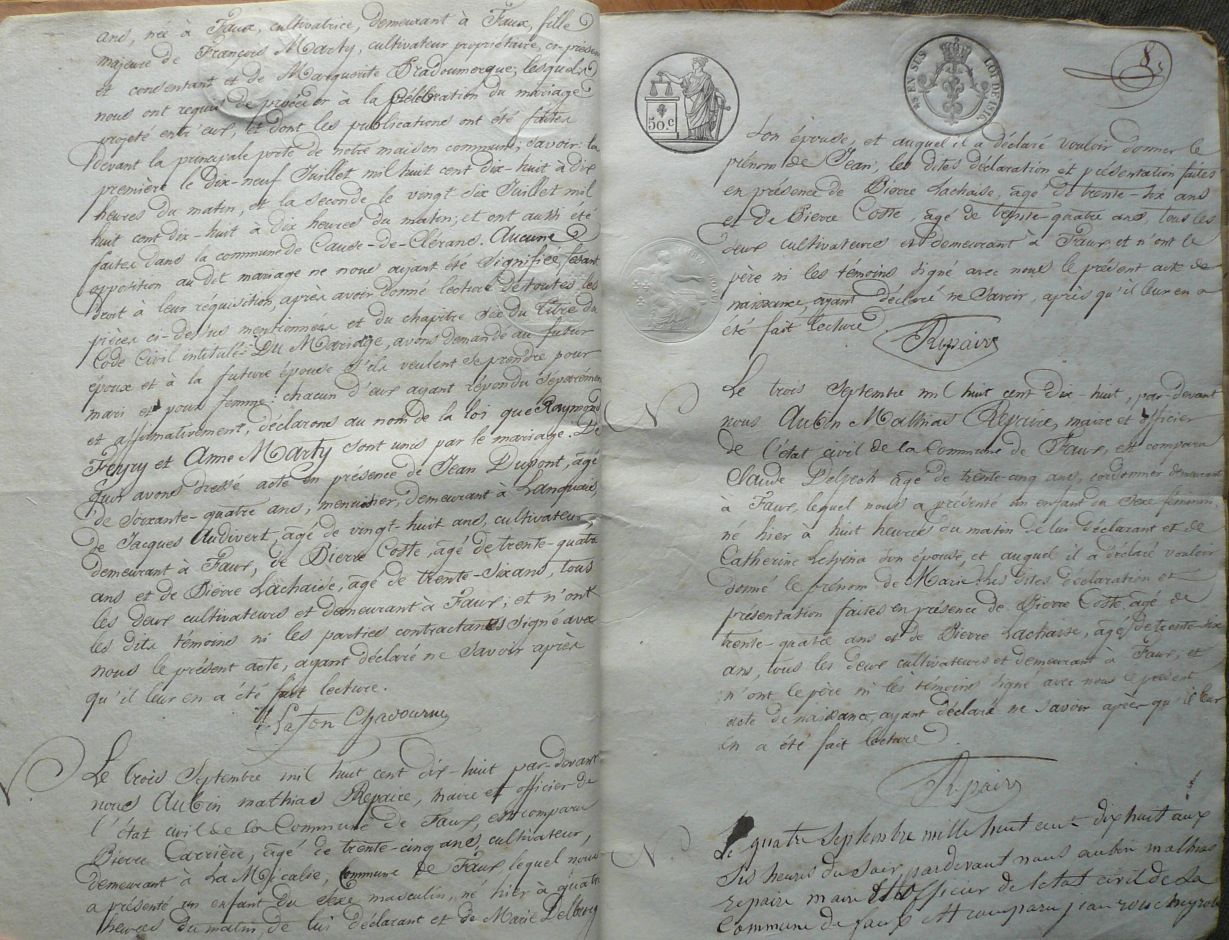 ans, née à Faux, cultivatrice, demeurant à Faux, fille
majeure de François Marty, cultivateur propriétaire, en présen
et consentant et de Marguerite Pradoumerque; lesquels
nous ont requis de procéder à la célébration du mariage
projeté entr'eux, et dont les publications ont été faites
devant la principale porte de notre maison commune; savoir: la
première le dix-neuf Juillet mil huit cent dix-huit à dix
heures du matin, et la seconde le vingt six Juillet mil
huit cent dix-huit à dix heures du matin; et ont aussi été
faites dans la commune de Cause-de-Clérans. Aucune
opposition au dit mariage ne nous ayant été signifiée, fesant
droit à leur réquisition, après avoir donné lecture de toutes les
pièces ci-dessus mentionnées et du chapitre six du titre du
Code Civil intitulé Du Mariage, avons demandé au futur
époux et à la future épouse s'ils veulent se prendre pour
mari et pour femme: chacun d'eux ayant répondu séparemen
et affirmativement, déclarons au nom de la loi que Raymond
Feyry et Anne Marty sont unis par le mariage. De
quoi avons dressé acte en présence de Jean Dupont, âgé
de soixante-quatre ans, menuisier, demeurant à Lanquais,
de Jacques Audivert, âgé de vingt-huit ans, cultivateur
demeurant à Faux, de Pierre Coste, âgé de trente-quatre
ans et de Pierre Lachaise, âgé de trente-six ans, tous
les deux cultivateurs et demeurant à Faux; et n'ont
les dits témoins ni les parties contractantes signé avec
nous le présent acte, ayant déclaré ne savoir après
qu'il leur en a été fait lecture.
Lafon Chadourne
Le trois Septembre mil huit cent dix-huit par-devant
nous Aubin mathias Repaire, maire et officier de
l'état civil de la Commune de Faux, est comparu
Pierre Carrière, âgé de trente-cinq ans, cultivateur,
demeurant à La Micalie, Commune de Faux, lequel nous
a présenté un enfant du sexe masculin, né hier à quatre
heures du matin, de lui déclarant et de Marie Delbourg
50.c
8
son épouse, et auquel il a déclaré vouloir donner le
prénom de Jean, les dites déclaration et présentation faites
en présence de Pierre Lachaise, âgé de trente-six ans
et de Pierre Coste, âgé de trente-quatre ans, tous les
deux cultivateurs et demeurant à Faux et n'ont le
père ni les témoins signé avec nous le présent acte de
naissance, ayant déclaré ne savoir, après qu'il leur en a
été fait lecture
Repaire
N
Le trois Septembre mil huit cent dix-huit, par-devant
nous Aubin Mathias Repaire, maire et officier
de l'état civil de la Commune de Faux, est comparu
Delpech âgé de trente-cinq ans, cordonnier demeurant
à Faux, lequel nous a présenté un enfant du sexe féminin,
né hier à huit heures du matin de lui déclarant et de
Catherine Lespina son épouse et auquel il a déclaré vouloir
donné le prénom de Marie. Les dites déclaration et
présentation faites en présence de Pierre Coste, âgé de
trente-quatre ans et de Pierre Lachaise, âgé de trente-six
ans, tous les deux cultivateurs et demeurant à Faux, et
n'ont le père ni les témoins signé avec nous le présent
acte de naissance, ayant déclaré ne savoir après qu'il leur
en a été fait lecture
Repaire
N.
Le quatre Septembre mille huit cent dix huit aux
Six heures du soir, pardevant nous aubin mathias
repaire maire officier de letat civil de la
Commune de faux est comparu jean